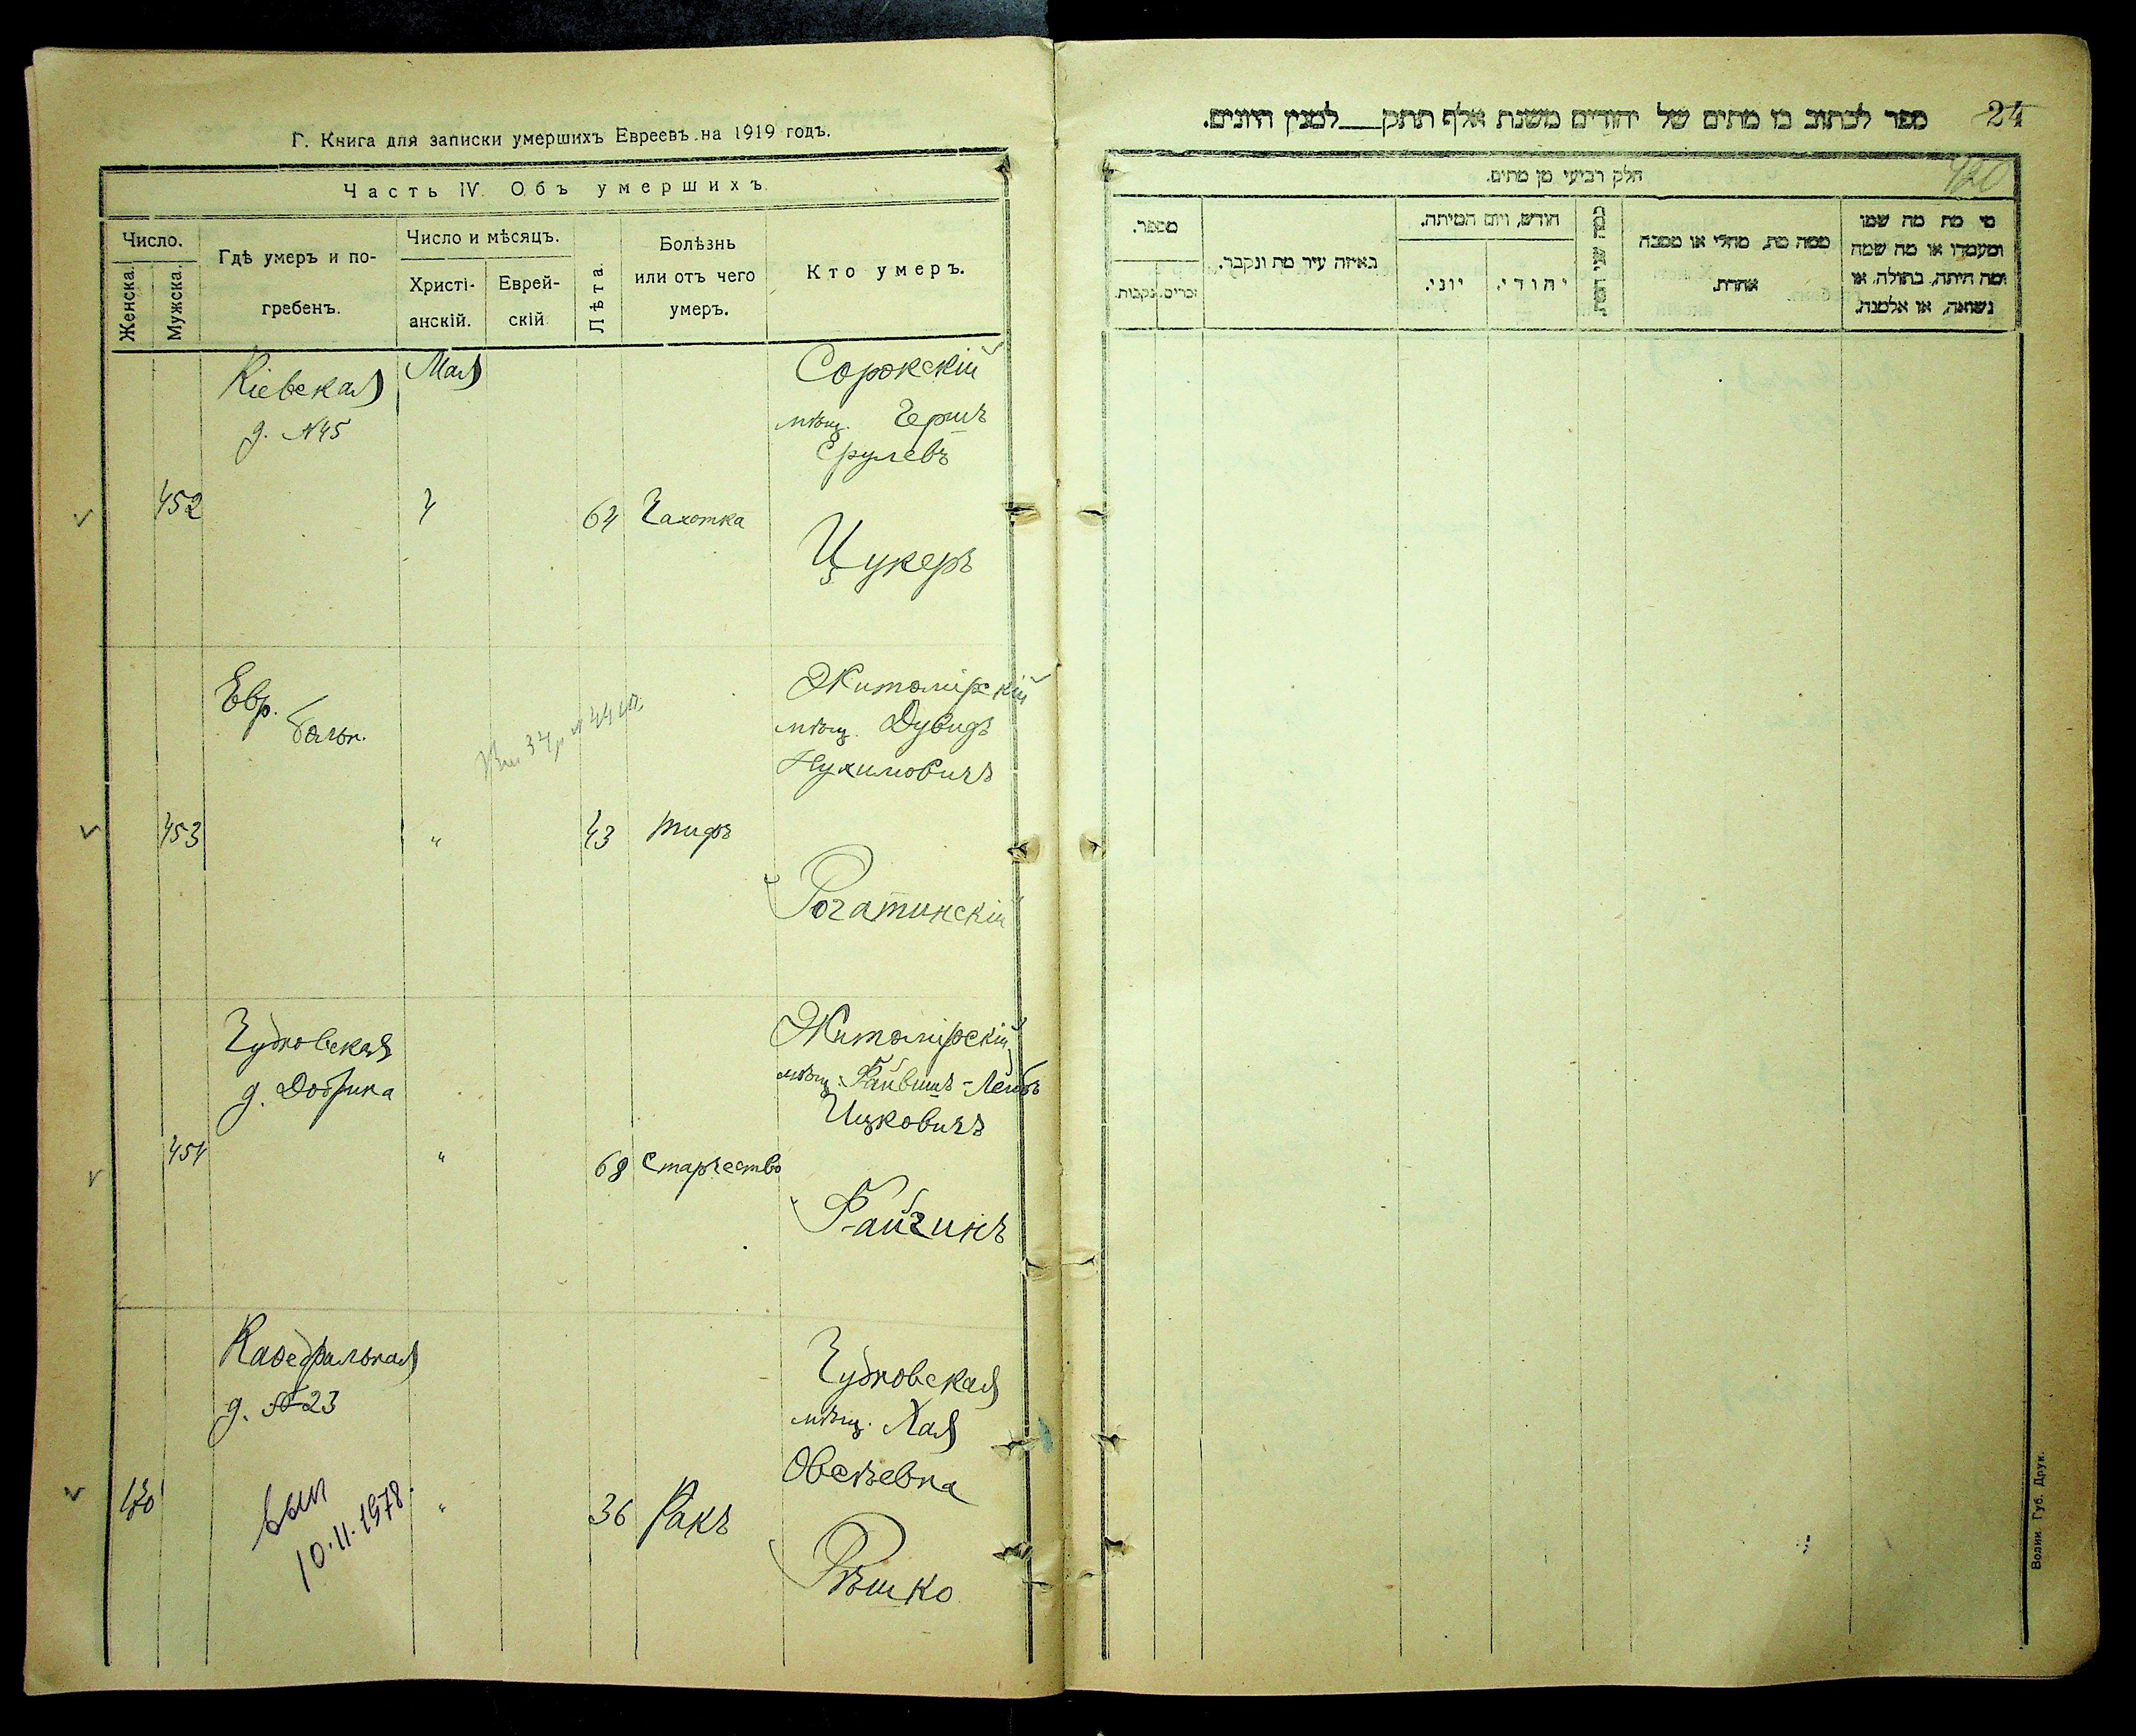 Г. Книга для записки умершихъ Евреевъ на 1919 годъ.
Часть IV. Объ умершихъ.
Число.
Женска.
Мужска.
Гдѣ умеръ и по-
гребенъ.
Число и мѣсяцъ.
Христі-
анскій.
Еврей-
скій
Лѣта.
Болѣзнь
или отъ чего
умеръ.
Кто умеръ.
Кіевская
д. №45
Мая
Сорокскій
мѣщ. Гершъ
Срулевъ
452
4
64
Чахотка
Цукеръ
Евр.
больн.
Житомірскій
мѣщ. Дувидъ
Нухимовичъ
453
"
43
тифъ
Рогатинскій
Чудновская
д. Добрина
Житомірскій
мѣщ. Файвишъ-Лейбъ
Ицковичъ
454
"
68
Старчество
Файгинъ
Кафедральная
д. №23
Чудновская
мѣщ. Хая
Овсѣевна
170
"
36
Ракъ
Рѣшко
вып
10.11.1978.
24
420
ספר לכתוב בו מתים של יהודים משנת אלף תתק___למנין היונים.
חלק רביעי מן מתים.
מספר.
זכרים.
נקבות.
באיזה עיר מת ונקבר.
חודש, ויום המיתה.
יוני.
יהודי.
כמה שני המת.
ממה מת, מחלי או מסבה
אחרת.
מי מת מה שמו
ומעמדו או מה שמה
ומה היתה, בתולה, או
נשואה, או אלמנה.
Волин. Губ. Друк.